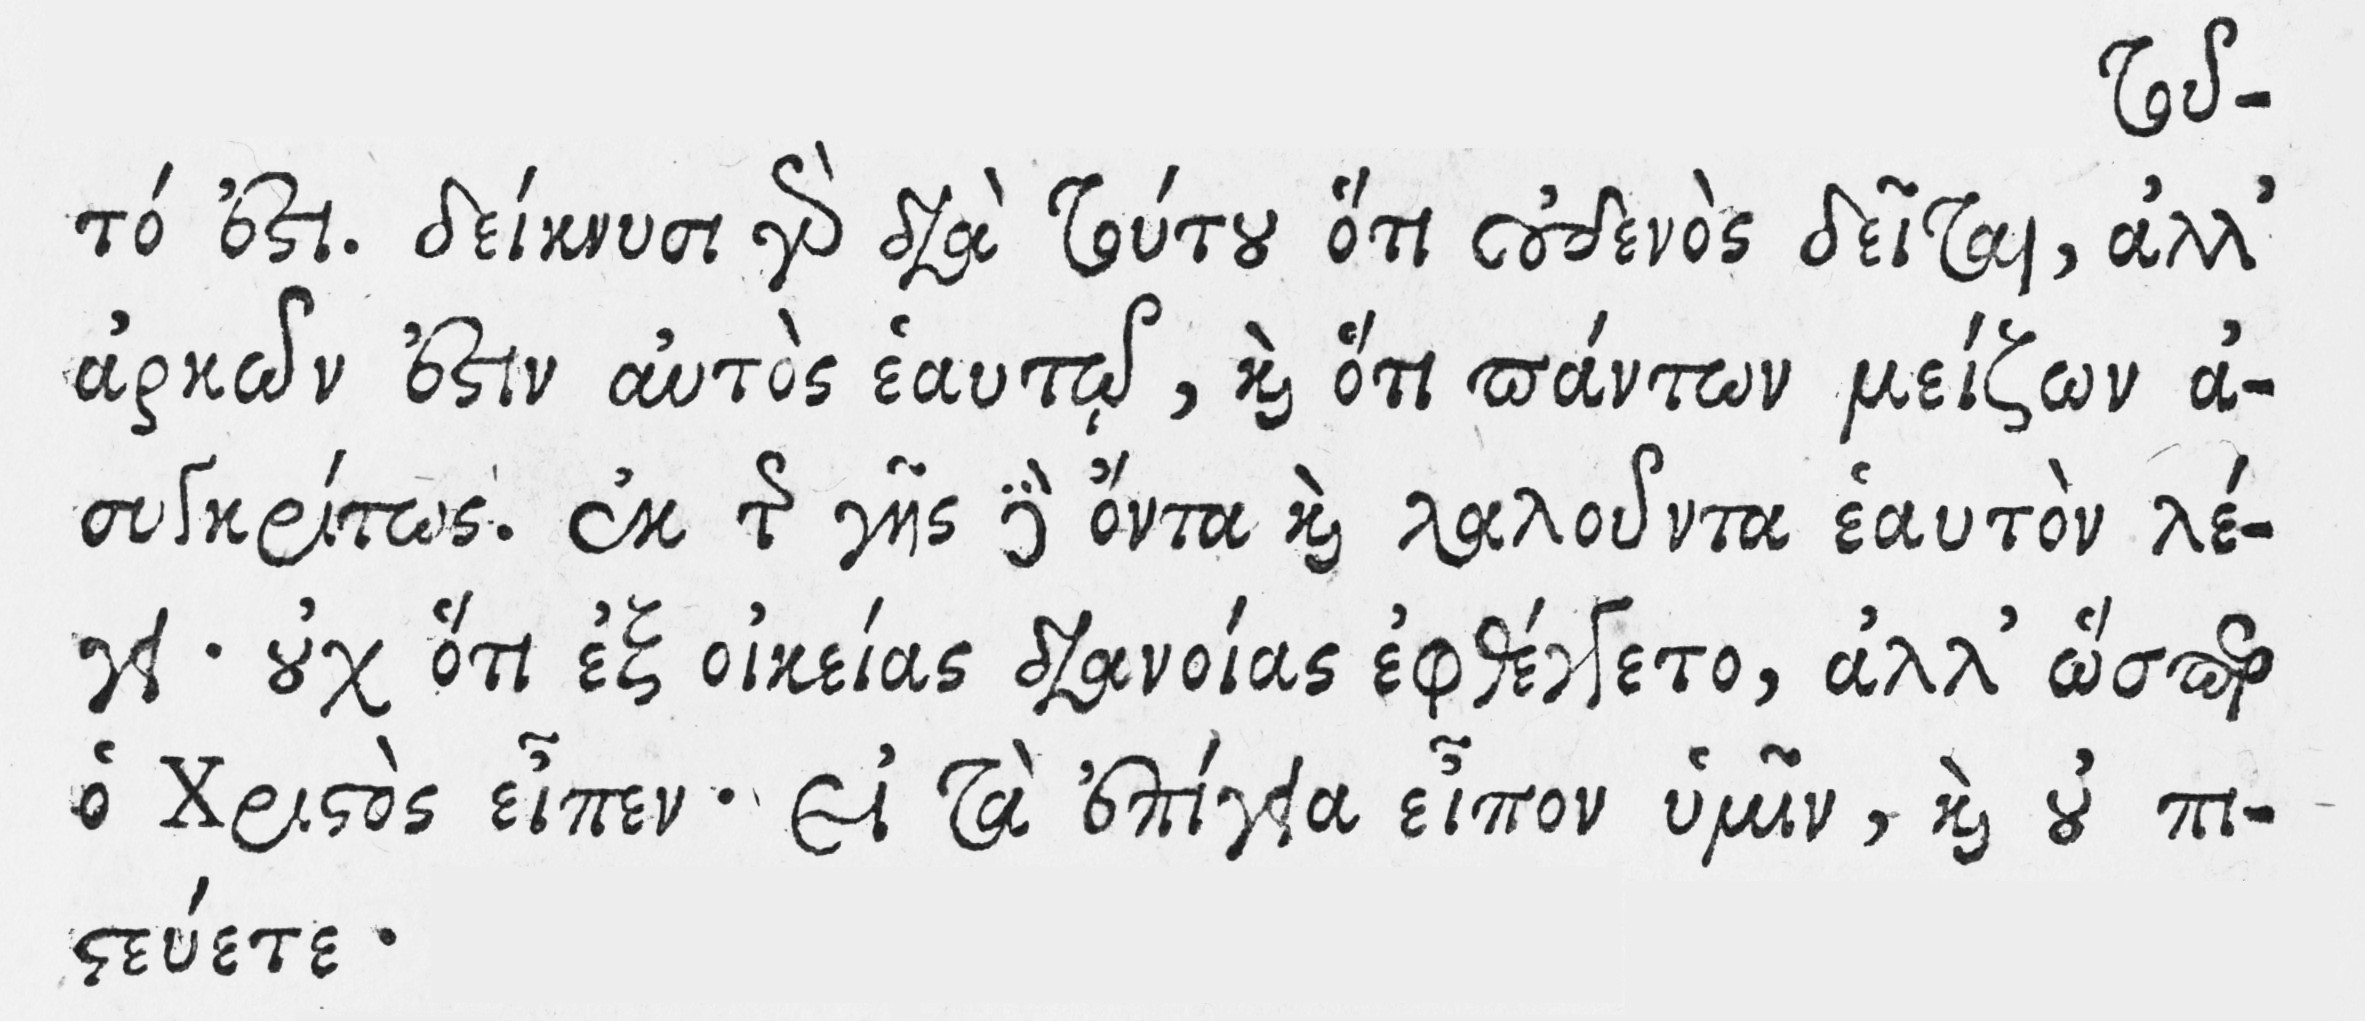 τοῦ-
τό ἐστι. δείκνυσι γὰρ διὰ τούτου ὅτι οὐδενὸς δεῖται, ἀλλ’
ἀρκῶν ἐστιν αὐτὸς ἑαυτῷ, καὶ ὅτι πάντων μείζων ἀ-
συγκρίτως. ἐκ τῆς γῆς δὲ ὄντα καὶ λαλοῦντα ἑαυτὸν λέ-
γει· οὐχ ὅτι ἐξ οἰκείας διανοίας ἐφθέγγετο, ἀλλ’ ὥσπερ
ὁ Χριστὸς εἶπεν· Εἰ τὰ ἐπίγεια εἶπον ὑμῖν, καὶ οὐ πι-
στεύετε·